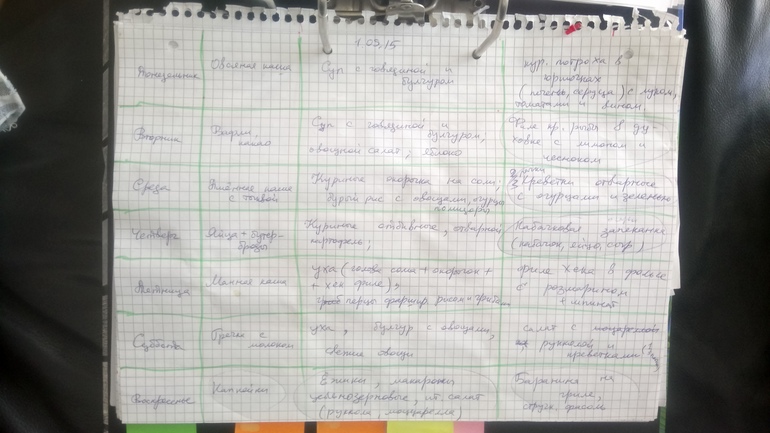 1.09.15
Понедельник
Овсяная каша
Суп с говядиной и
булгуром
кур. потроха в
горшочках
(печень, сердца) с луком,
томатами и вином
Вторник
Вафли,
какао
Суп с говядиной и
булгуром,
овощной салат, яблоко
Филе кр. рыбы в ду
ховке с лимоном и
чесноком
Среда
Пшённая каша
с тыквой
Куриные окорочка на соли,
бурый рис с овощами, огурцы
помидоры
креветки отварные
с огурцами и зеленью
Четверг
Яйца + бутер-
броды
Куриные отбивные, отварной
картофель;
Кабачковая запеканка
(кабачок, яйцо, сыр)
Пятница
Манная каша
уха (голова сома + окорочок +
+ хек филе),
перцы фаршир. рисом и грибами
филе хека в фольге
с розмарином
+ шпинат
Суббота
Гречка с
молоком
уха, булгур с овощами,
свежие овощи
салат с
рукколой и
креветками
Воскресенье
Капкейки
макароны
цельнозерновые, ит. салат
(руккола, моццарелла)
Баранина на
гриле,